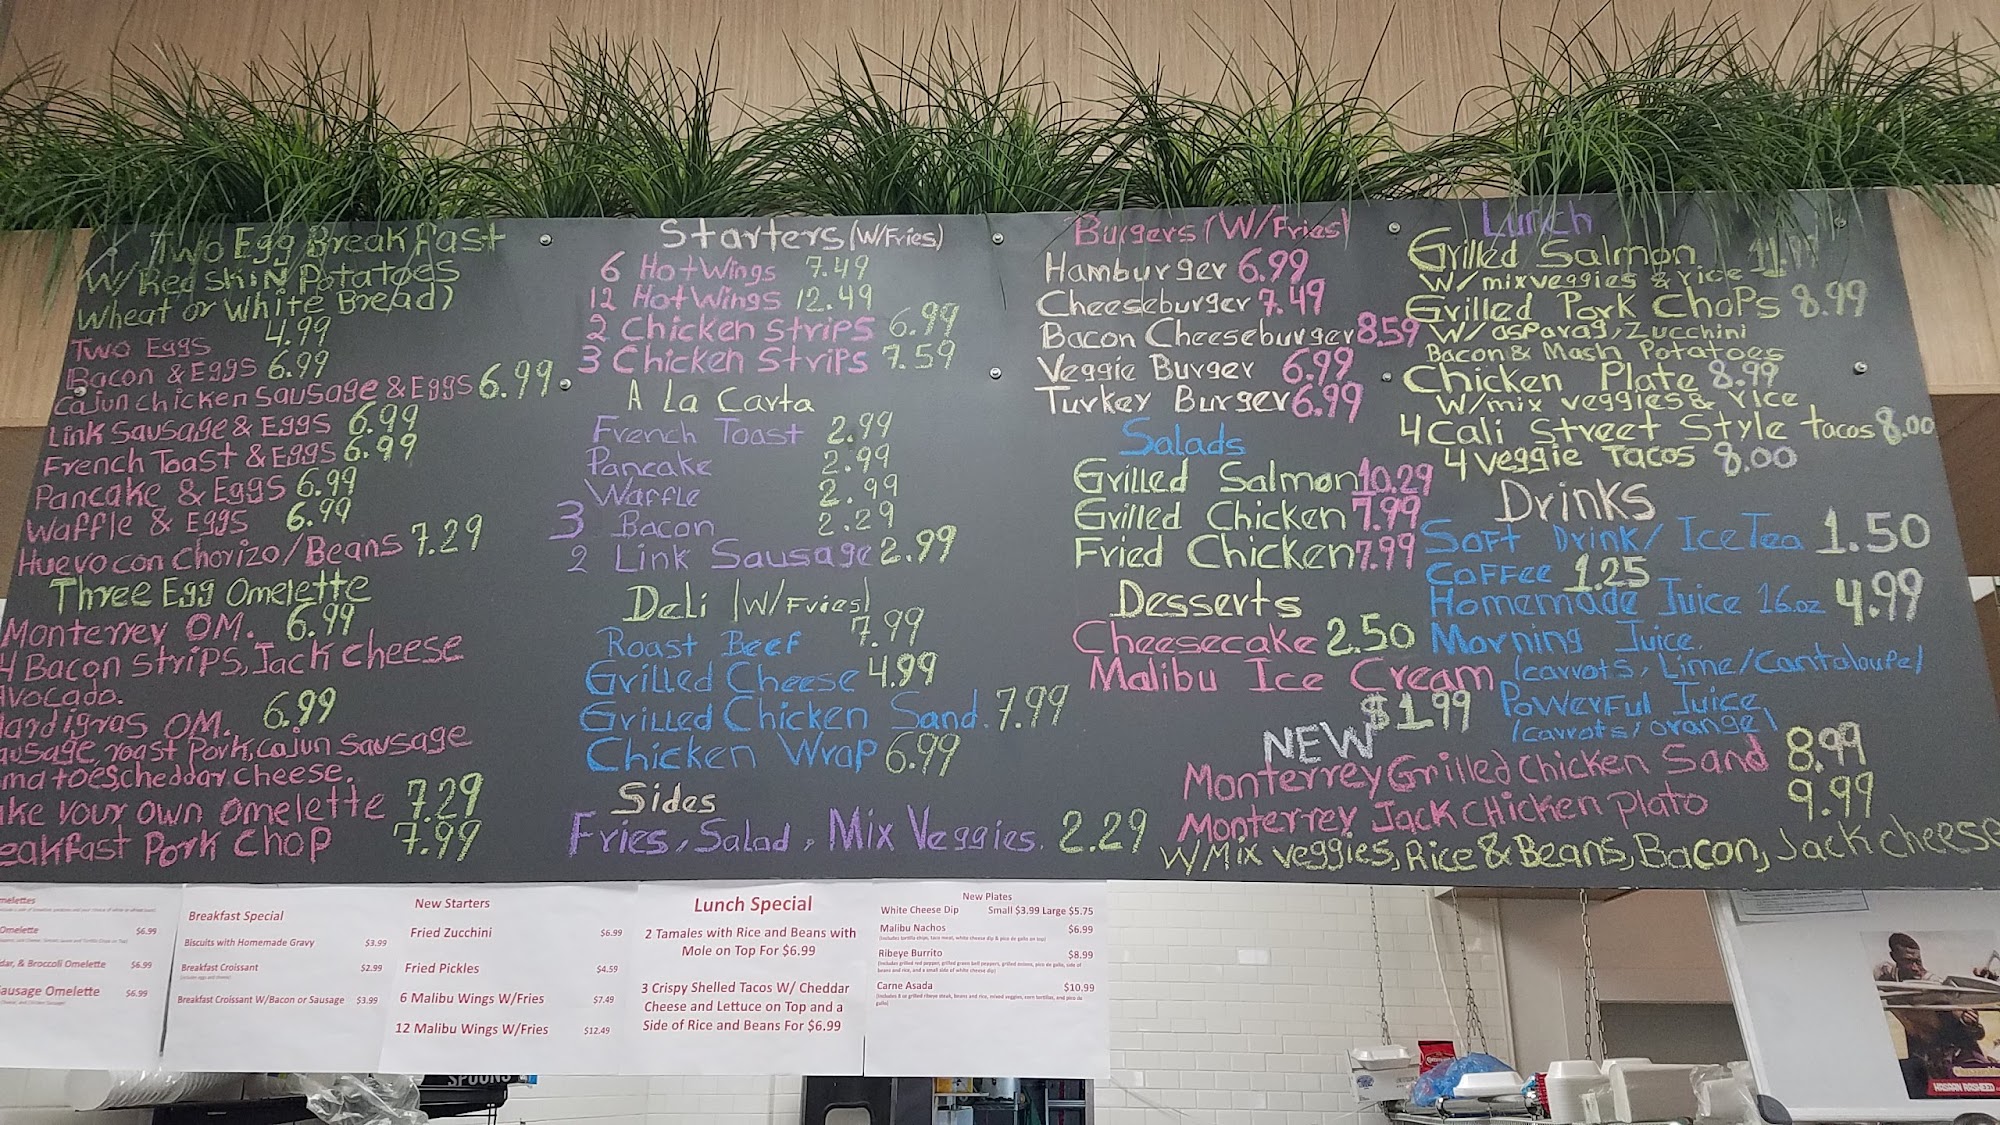 Two Egg Breakfast
W/Red Skin Potatoes
Wheat or White Bread)
4.99
Two Eggs
Bacon & Eggs 6.99
Cajun Chicken Sausage & Eggs 6.99
Link Sausage & Eggs 6.99
French Toast & Eggs 6.99
Pancake & Eggs 6.99
Waffle & Eggs 6.99
Huevo con Chorizo/Beans 7.29
Three Egg Omelette
Monterrey OM. 6.99
4 Bacon Strips, Jack Cheese
Avocado.
ardigras OM. 6.99
ausage, roast Pork, Cajun Sausage
matoes, cheddar, cheese.
ake your own Omelette 7.29
eakfast Pork Chop 7.99
Starters (W/Fries)
6 Hot Wings 7.49
12 Hot Wings 12.49
2 Chicken Strips 6.99
3 Chicken Strips 7.59
A La Carta
French Toast 2.99
Pancake 2.99
Waffle 2.99
3 Bacon 2.29
2 Link Sausage 2.99
Deli (W/Fries)
Roast Beef 7.99
Grilled Cheese 4.99
Grilled Chicken Sand. 7.99
Chicken Wrap 6.99
Sides
Fries, Salad, Mix Veggies. 2.29
Burgers (W/Fries)
Hamburger 6.99
Cheeseburger 7.49
Bacon Cheeseburger 8.59
Veggie Burger 6.99
Turkey Burger 6.99
Salads
Grilled Salmon 10.29
Grilled Chicken 7.99
Fried Chicken 7.99
Desserts
Cheesecake 2.50
Malibu Ice Cream
$1.99
Lunch
Grilled Salmon
W/mix veggies & rice
Grilled Pork Chops 8.99
W/asparag, Zucchini
Bacon & Mash Potatoes
Chicken Plate 8.99
W/mix veggies & rice
4 Cali Street Style tacos 8.00
4 Veggie Tacos 8.00
Drinks
Soft Drink/ Ice Tea 1.50
Coffee 1.25
Homemade Juice 16oz 4.99
Morning Juice.
(carrots, Lime/Cantaloupe)
Powerful Juice
(carrots/orange)
NEW
Monterrey Grilled Chicken Sand 8.99
Monterrey Jack Chicken Plato 9.99
W/Mix Veggies, Rice & Beans, Bacon, Jack Cheese
melettes
Omelette $6.99
dar, & Broccoli Omelette $6.99
ausage Omelette $6.99
Breakfast Special
Biscuits with Homemade Gravy $3.99
Breakfast Croissant $2.99
Breakfast Croissant W/Bacon or Sausage $3.99
New Starters
Fried Zucchini $6.99
Fried Pickles $4.59
6 Malibu Wings W/Fries $7.49
12 Malibu Wings W/Fries $12.49
Lunch Special
2 Tamales with Rice and Beans with
Mole on Top For $6.99
3 Crispy Shelled Tacos W/ Cheddar
Cheese and Lettuce on Top and a
Side of Rice and Beans For $6.99
New Plates
White Cheese Dip Small $3.99 Large $5.75
Malibu Nachos $6.99
(Includes tortilla chips, taco meat, white cheese dip & pico de gallo on top)
Ribeye Burrito $8.99
(Includes grilled red pepper, grilled green bell peppers, grilled onions, pico de gallo, side of
beans and rice, and a small side of white cheese dip)
Carne Asada $10.99
(Includes 8 oz grilled ribeye steak, beans and rice, mixed veggies, corn tortillas, and pico de
gallo)
SPOONS
HASSAN RASHEED